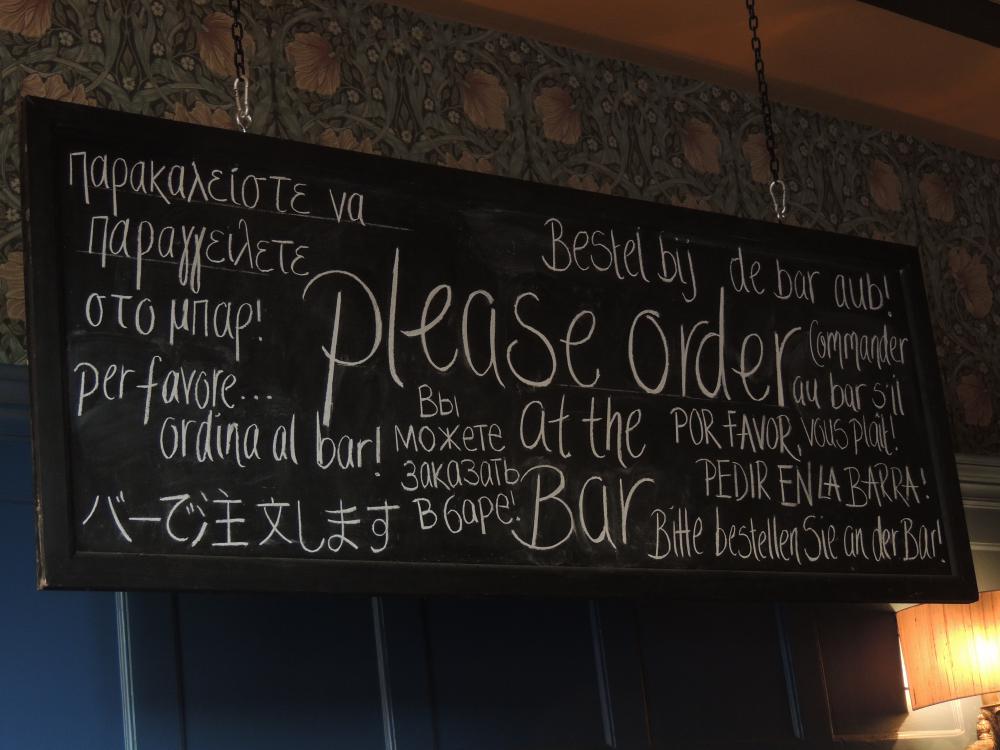 παρακαλείστε να
παραγγείλετε
στο μπαρ!
per favore...
ordina al bar!
バーで注文します
Вы
можете
заказать
в баре!
please order
at the
Bar
Bestel bij de bar aub!
Commander
au bar s'il
vous plaît!
POR FAVOR,
PEDIR EN LA BARRA!
Bitte bestellen Sie an der Bar!